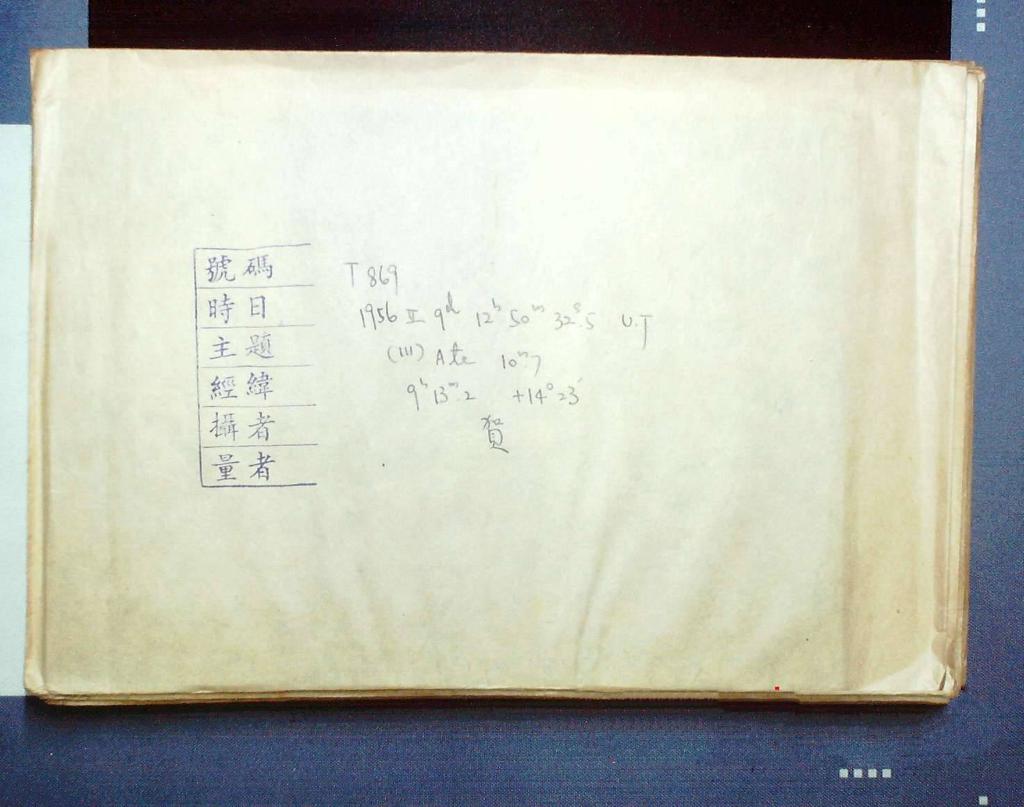 號碼 T 869
時日 1956 II 9ᵈ 12ʰ 50ᵐ 32ˢ.5 U.T
主題 (111) Ate 10ᵐ.7
經緯 9ʰ 13ᵐ.2 +14°23′
攝者 賀
量者